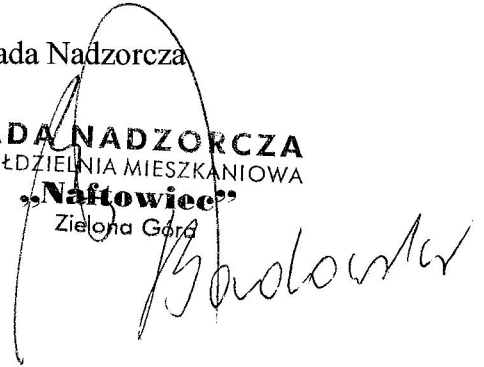 ada Nadzorcza
ADA NADZORCZA
ŁDZIELNIA MIESZKANIOWA
„Naftowiec”
Zielona Góra